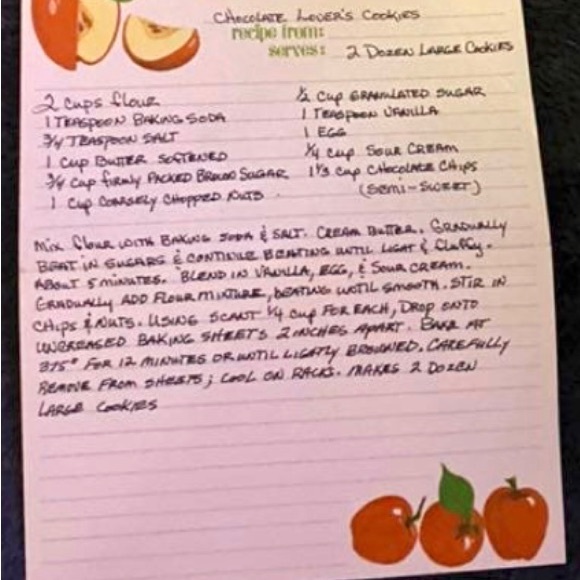 Chocolate Lover's Cookies
recipe from:
serves: 2 Dozen Large Cookies
2 cups flour
1 Teaspoon Baking Soda
3/4 Teaspoon Salt
1 cup Butter Softened
3/4 cup firmly Packed Brown Sugar
1 cup Coarsely Chopped Nuts
1/2 cup Granulated Sugar
1 Teaspoon Vanilla
1 Egg
1/4 cup Sour Cream
1 1/3 cup Chocolate Chips
(Semi-Sweet)
Mix flour with Baking Soda & Salt. Cream Butter. Gradually
Beat in Sugars & continue beating until light & fluffy.
About 5 minutes. Blend in Vanilla, Egg, & Sour Cream.
Gradually add flour mixture, beating until smooth. Stir in
Chips & Nuts. Using scant 1/4 cup for each, Drop onto
ungreased baking sheets 2 inches apart. Bake at
375° for 12 minutes or until lightly browned. Carefully
Remove from sheets; cool on racks. Makes 2 Dozen
Large Cookies